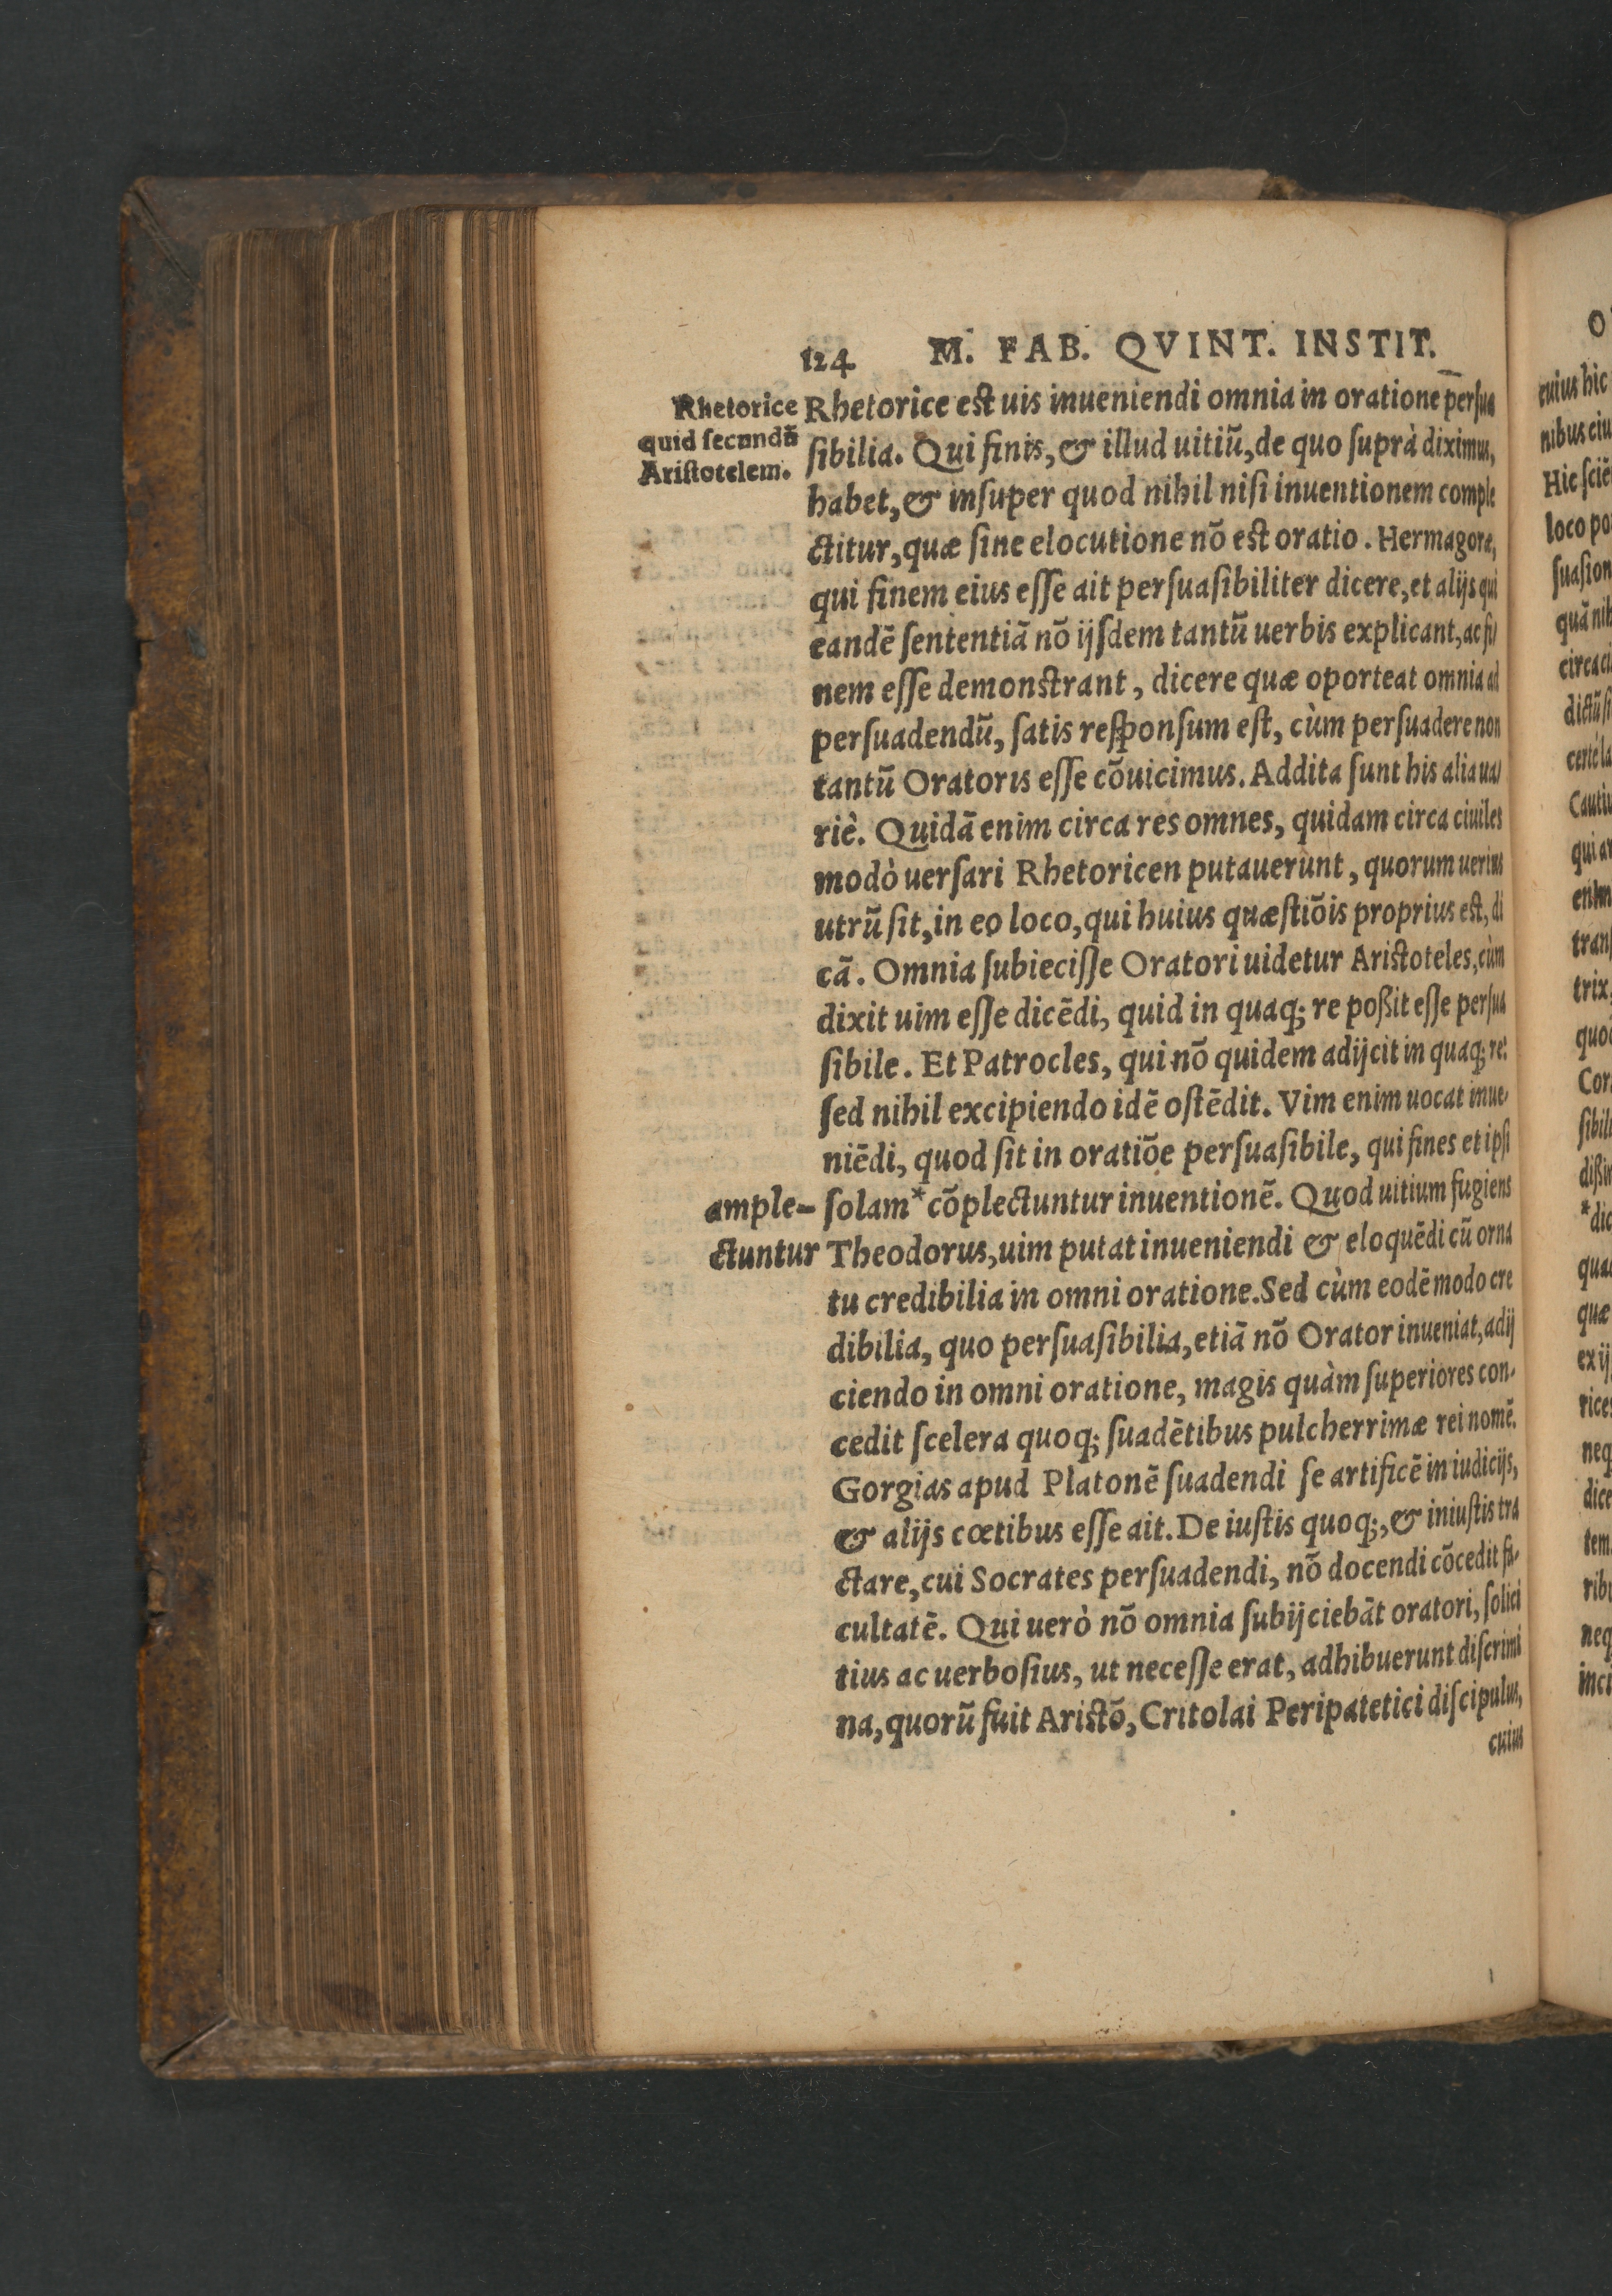 124 M. FAB. QVINT. INSTIT.
Rhetorice
quid secundũ
Aristotelem.
Rhetorice est uis inueniendi omnia in oratione persua
sibilia. Qui finis, & illud uitiũ, de quo suprà diximus,
habet, & insuper quod nihil nisi inuentionem comple
ctitur, quæ sine elocutione nõ est oratio. Hermagoræ,
qui finem eius esse ait persuasibiliter dicere, et alijs qui
eandẽ sententiã nõ ijsdem tantũ uerbis explicant, ac fi/
nem esse demonstrant, dicere quæ oporteat omnia ad
persuadendũ, satis responsum est, cùm persuadere non
tantũ Oratoris esse cõuicimus. Addita sunt his alia ua/
riè. Quidã enim circa res omnes, quidam circa ciuiles
modò uersari Rhetoricen putauerunt, quorum uerius
utrũ sit, in eo loco, qui huius quæstiõis proprius est, di
cã. Omnia subiecisse Oratori uidetur Aristoteles, cùm
dixit uim esse dicẽdi, quid in quaq; re poßit esse persua
sibile. Et Patrocles, qui nõ quidem adijcit in quaq; re:
sed nihil excipiendo idẽ ostẽdit. Vim enim uocat inue/
niẽdi, quod sit in oratiõe persuasibile, qui fines et ipsi
solam* cõplectuntur inuentionẽ. Quod uitium fugiens
ample-
ctuntur
Theodorus, uim putat inueniendi & eloquẽdi cũ orna
tu credibilia in omni oratione. Sed cùm eodẽ modo cre
dibilia, quo persuasibilia, etiã nõ Orator inueniat, adij
ciendo in omni oratione, magis quàm superiores con/
cedit scelera quoq; suadẽtibus pulcherrimæ rei nomẽ.
Gorgias apud Platonẽ suadendi se artificẽ in iudicijs,
& alijs cœtibus esse ait. De iustis quoq;, & iniustis tra
ctare, cui Socrates persuadendi, nõ docendi cõcedit fa/
cultatẽ. Qui uerò nõ omnia subijciebãt oratori, solici
tius ac uerbosius, ut necesse erat, adhibuerunt discrimi
na, quorũ fuit Aristõ, Critolai Peripatetici discipulus,
cuius